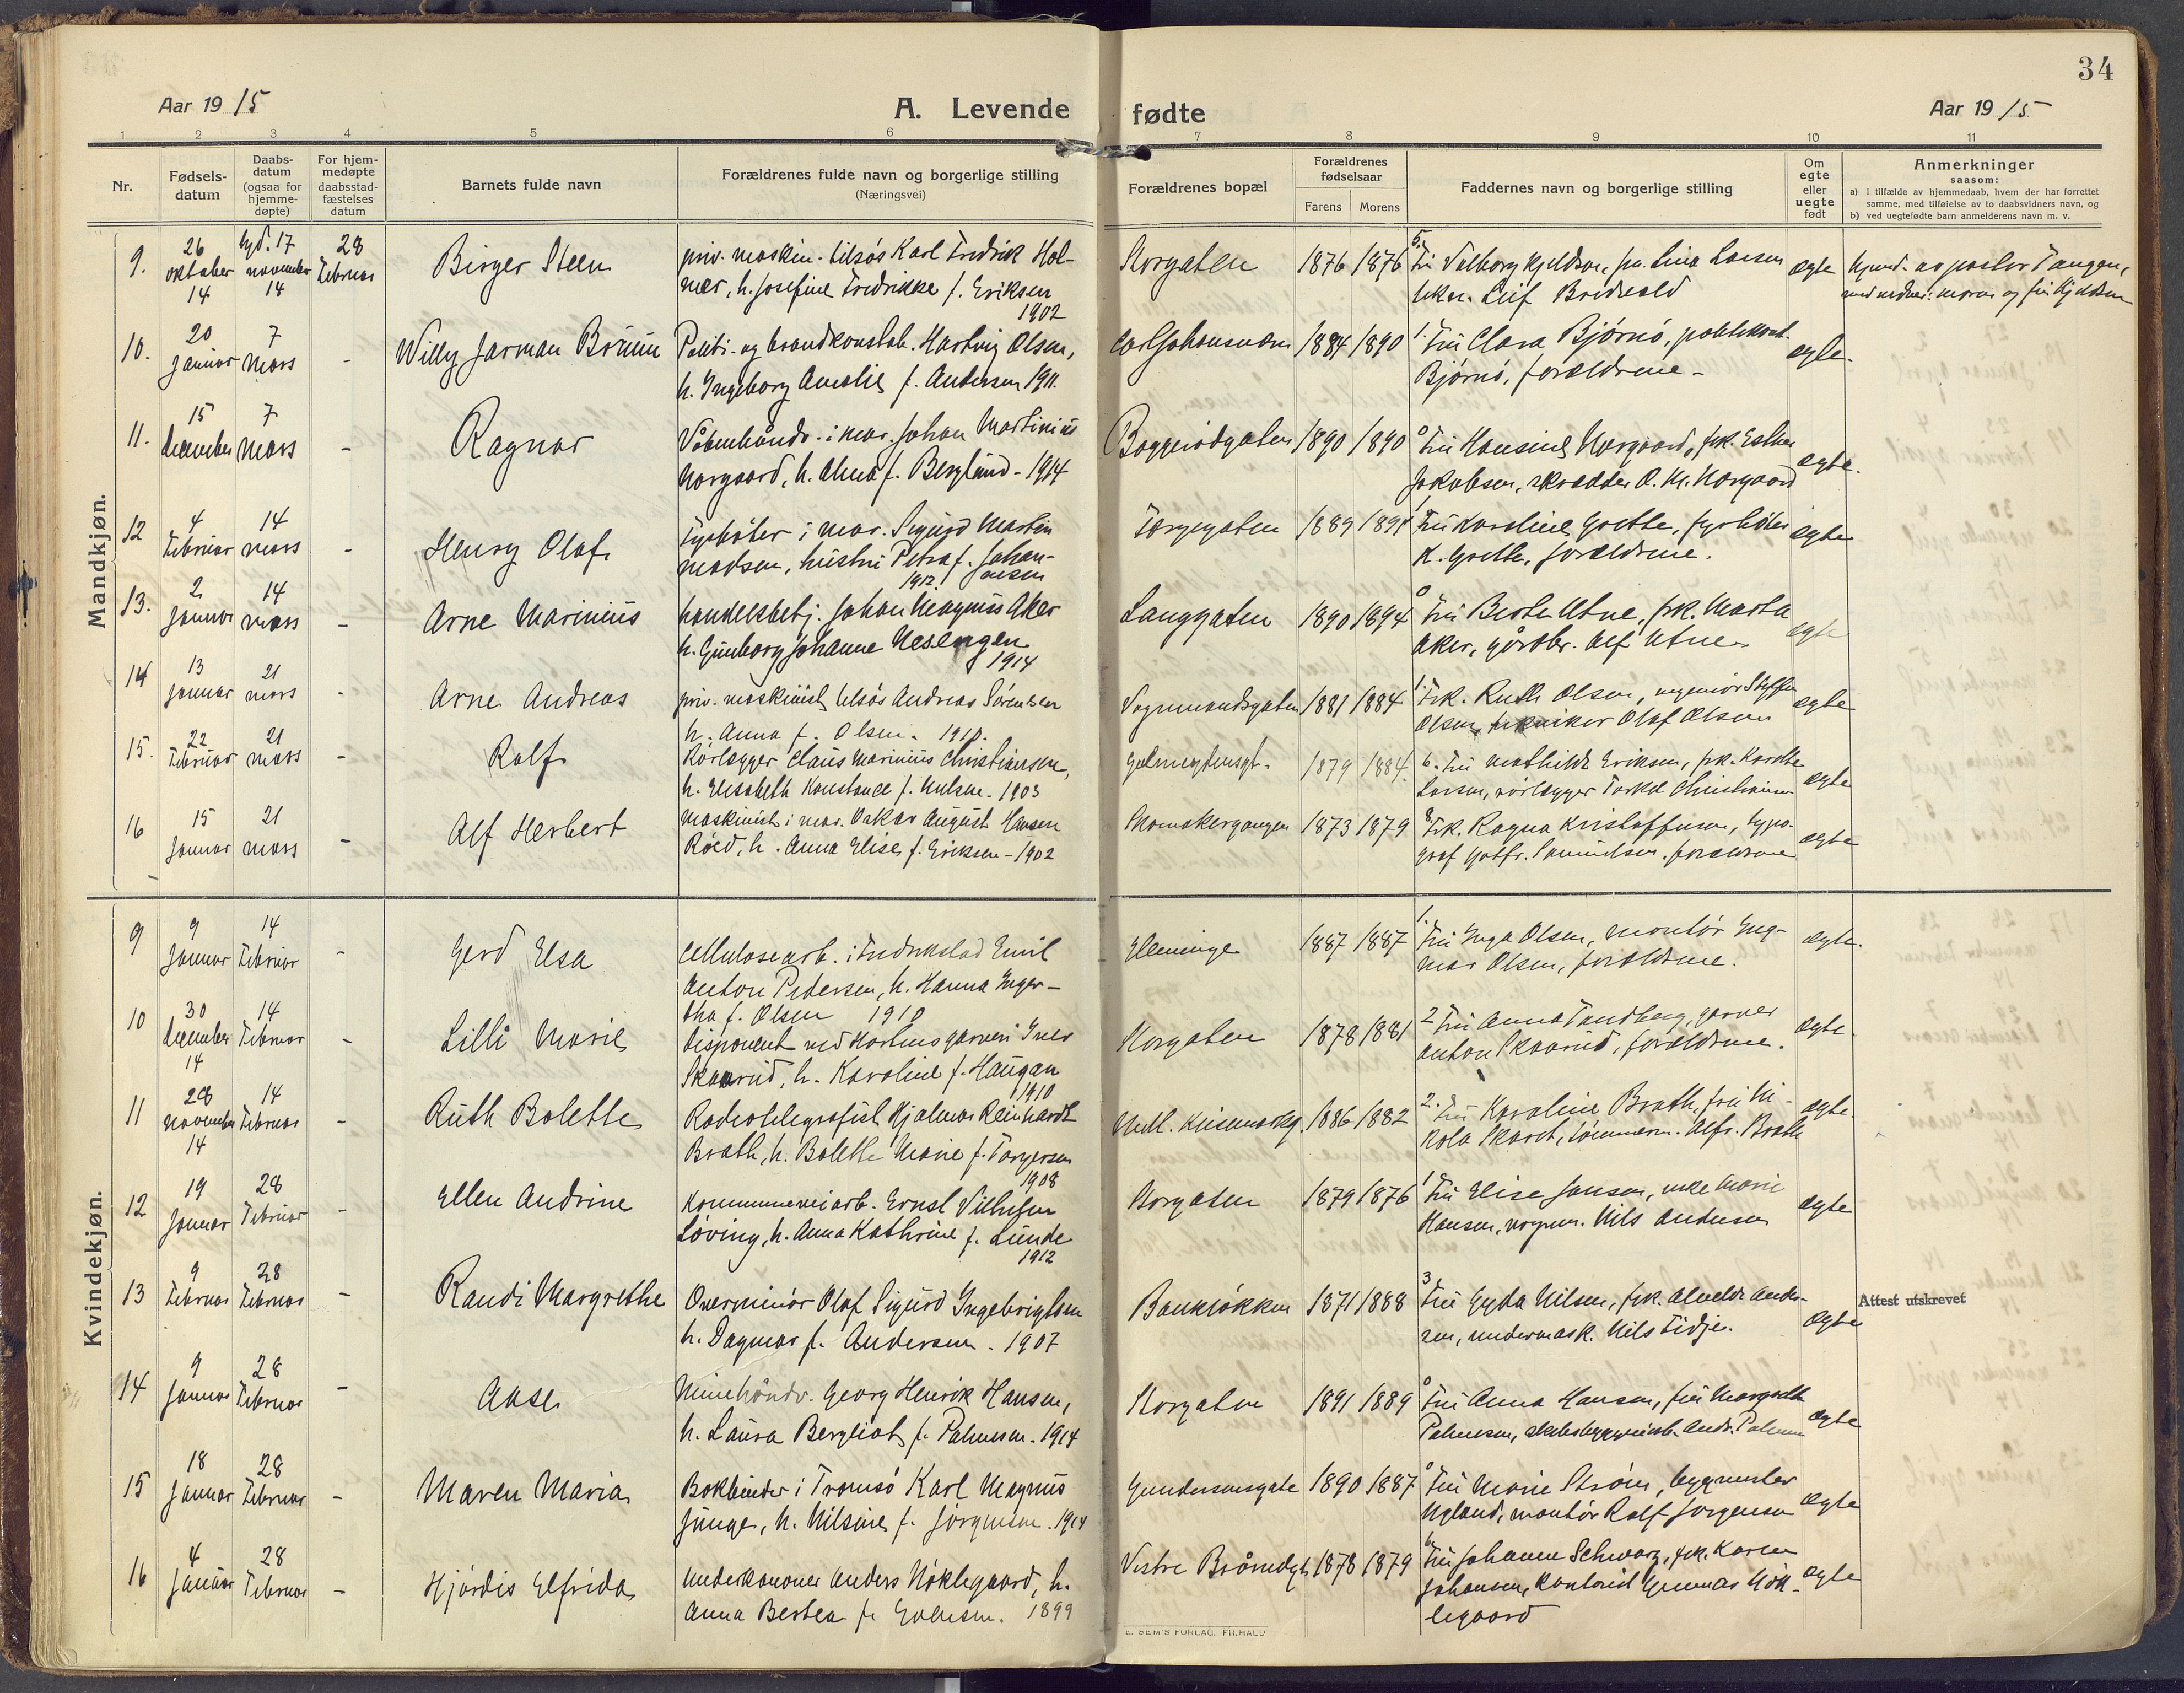 34
Aar 1915
A. Levende fødte
Aar 1915
1 2 3 4 5 6 7 8 9 10 11
Nr.
Fødsels-
datum
Daabs-
datum
(ogsaa for
hjemme-
døpte)
For hjem-
medøpte
daabsstad-
fæstelses
datum
Barnets fulde navn
Forældrenes fulde navn og borgerlige stilling
(Næringsvei)
Forældrenes bopæl
Forældrenes
fødselsaar
Farens Morens
Faddernes navn og borgerlige stilling
Om
egte
eller
uegte
født
Anmerkninger
saasom:
a) i tilfælde av hjemmedaab, hvem der har forrettet
samme, med tilføielse av to daabsvidners navn, og
b) ved uegtefødte barn anmelderens navn m. v.
Mandkjøn.
9. 26 oktober 14
17 november 14
28 Februar
Birger Steen
priv. maskin. tilsös Karl Fredrik Hol-
mer, h. Josefine Fredrikke f. Eriksen
1902
Storgaten 1876 1876
5. Fru Valborg Kjeldsen, fru Lina Larsen
Leif Bredvold
egte
av pastor Tangen,
10. 20 Januar
7 Mars
-
Willy Jarman Brunn
Politi- og brandkonstab. Hartvig Olsen,
h. Ingeborg Amalie f. Andersen 1911.
Carljohansværn 1884 1890
1. Fru Clara Bjørnö, politikonst.
Bjørnö, forældrene -
egte.
11. 15 december
7 Mars
-
Ragnar
i mar. Johan Martinius
Norgaard, h. Alma f. Berglund - 1914
Baggerødgaten 1890 1890
0 Fru Hansine Norgaard, frk. Esther
Jakobsen, skrædder O. Kr. Norgaard
egte.
12 4 Februar
14 mars
-
Henry Olaf
Fyrböter i mar. Sigurd Martin
Madsen, hustru Petra f. Johan-
nesen
1912
Torggaten 1889 1891
1 Fru Karoline Grette, fyrböter
K. Grette, forældrene.
egte
13. 2 Januar
14 mars
-
Arne Marinius
handelsbetj. Johan Magnus Aker
h. Gunborg Johanne Nesengen
1914
Langgaten 1890 1894
0 Fru Berte Utne, frk. Marta
Aker, gårdbr. Alf Utne
egte
14 13 Januar
21 mars
-
Arne Andreas
priv. maskinist tilsös Andreas Sörensen
h. Anna f. Olsen. 1910.
Vognmandsgaten 1881 1884
1. Frk. Ruth Olsen, ingeniör Steffen
Olsen, tekniker Olaf Olsen
egte
15. 22 Februar
21 mars
-
Rolf
Rörlægger Claus Marinius Christiansen,
h. Elisabeth Konstance f. Nilsen. 1903
1879 1884.
6. Fru Mathilde Eriksen, frk. Karethe
Larsen, rörlægger Torkel Christiansen
egte
16 15 Januar
21 mars
-
Alf Herbert
Maskinist i mar. Oskar August Hansen
Röed, h. Anna Elise f. Eriksen - 1902
Skomakergangen 1873 1879
8 Frk. Ragna Kristoffersen, typo-
graf Gotfr. Samuelsen. forældrene
egte
Kvindekjøn.
9 9 Januar
14 Februar
-
Gerd Elsa
Cellulosearb. i Fredrikstad Emil
Anton Pedersen, h. Hanna Inger-
tha f. Olsen 1910
1887 1887
1. Fru Inga Olsen, montör Ing-
mar Olsen, forældrene.
egte.
10 30 december 14
14 Februar
-
Lilli Marie
Disponent ved Hortens garveri Iver
Skaarud, h. Karoline f. Haugan
1910
Storgaten 1878 1881
2 Fru Anna Tandberg, garver
Anton Skaarud, forældrene.
egte.
11 28 november 14
14 Februar
-
Ruth Bolette
Radiotelegrafist Hjalmar Reinhardt
Brath, h. Bolette Marie f. Torgersen
1908
1886 1882
2. Fru Karoline Brath, fru Ni-
kola Skaret, tömmerm. Alfr. Brath
egte.
12 19 Januar
28 Februar
-
Ellen Andrine
Kommuneveiarb. Ernst Vilhelm
Löving, h. Anna Kathrine f. Lunde
1912
Storgaten 1879 1876
1 Fru Elise Jansen, enke Marie
Hansen, vognm. Nils Andersen
egte
13 9 Februar
28 Februar
-
Randi Margrethe
Overminör Olaf Sigurd Ingebrigtsen
h. Dagmar f. Andersen. 1907
Bankløkken 1871 1888
3 Fru Gyda Nilsen, frk. Alvilde Ander-
sen, undermask. Nils Tidje.
egte
Attest utskrevet
14 9 Januar
28 Februar
-
Aase
Minehåndv. Georg Henrik Hansen,
h. Laura Bergliot f. Palmesen. 1914
Storgaten 1891 1889
0 Fru Anna Hansen, fru Margrethe
Palmesen, Andr. Palmesen
egte
15 18 Januar
28 Februar
-
Maren Maria
Bokbinder i Tromsö Karl Magnus
Junge, h. Nilsine f. Jörgensen. 1914
Gundersensgate 1890 1887
0 Fru Marie Ström, byggmester
Nyland, montör Rolf Jörgensen
egte
16 4 Januar
28 Februar
-
Hjördis Elfrida
Underkanoner Anders Nöklegaard, h.
Anna Bertea f. Evensen. 1899
Vestre Brårudgt. 1878 1879
6 Fru Johanne Schwarz, frk. Karen
Johansen, kontorist Gunnar Nök-
legaard
egte
E. SEM'S FORLAG. FR.HALD